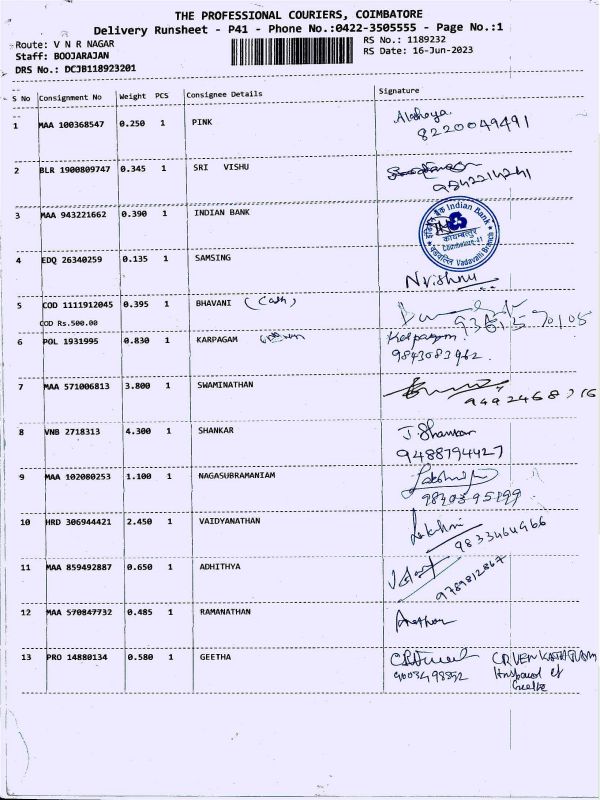 THE PROFESSIONAL COURIERS, COIMBATORE
Delivery Runsheet - P41 - Phone No.:0422-3505555 - Page No.:1
Route: V N R NAGAR RS No.: 1189232
Staff: BOOJARAJAN RS Date: 16-Jun-2023
DRS No.: DCJB118923201
S No Consignment No Weight PCS Consignee Details Signature
1 MAA 100368547 0.250 1 PINK
8220049491
2 BLR 1900809747 0.345 1 SRI VISHU
3 MAA 943221662 0.390 1 INDIAN BANK
Indian Bank
Coimbatore-41
Vadavalli Branch
4 EDQ 26340259 0.135 1 SAMSING
5 COD 1111912045 0.395 1 BHAVANI (Cash)
COD Rs.500.00
6 POL 1931995 0.830 1 KARPAGAM Kalpagam
9843083962
7 MAA 571006813 3.800 1 SWAMINATHAN
8 VNB 2718313 4.300 1 SHANKAR J. Shankar
9488794427
9 MAA 102080253 1.100 1 NAGASUBRAMANIAM
10 HRD 306944421 2.450 1 VAIDYANATHAN Lakshmi
9833464966
11 MAA 859492887 0.650 1 ADHITHYA
9789812867
12 MAA 570847732 0.485 1 RAMANATHAN
13 PRO 14880134 0.580 1 GEETHA
Husband of
Geetha